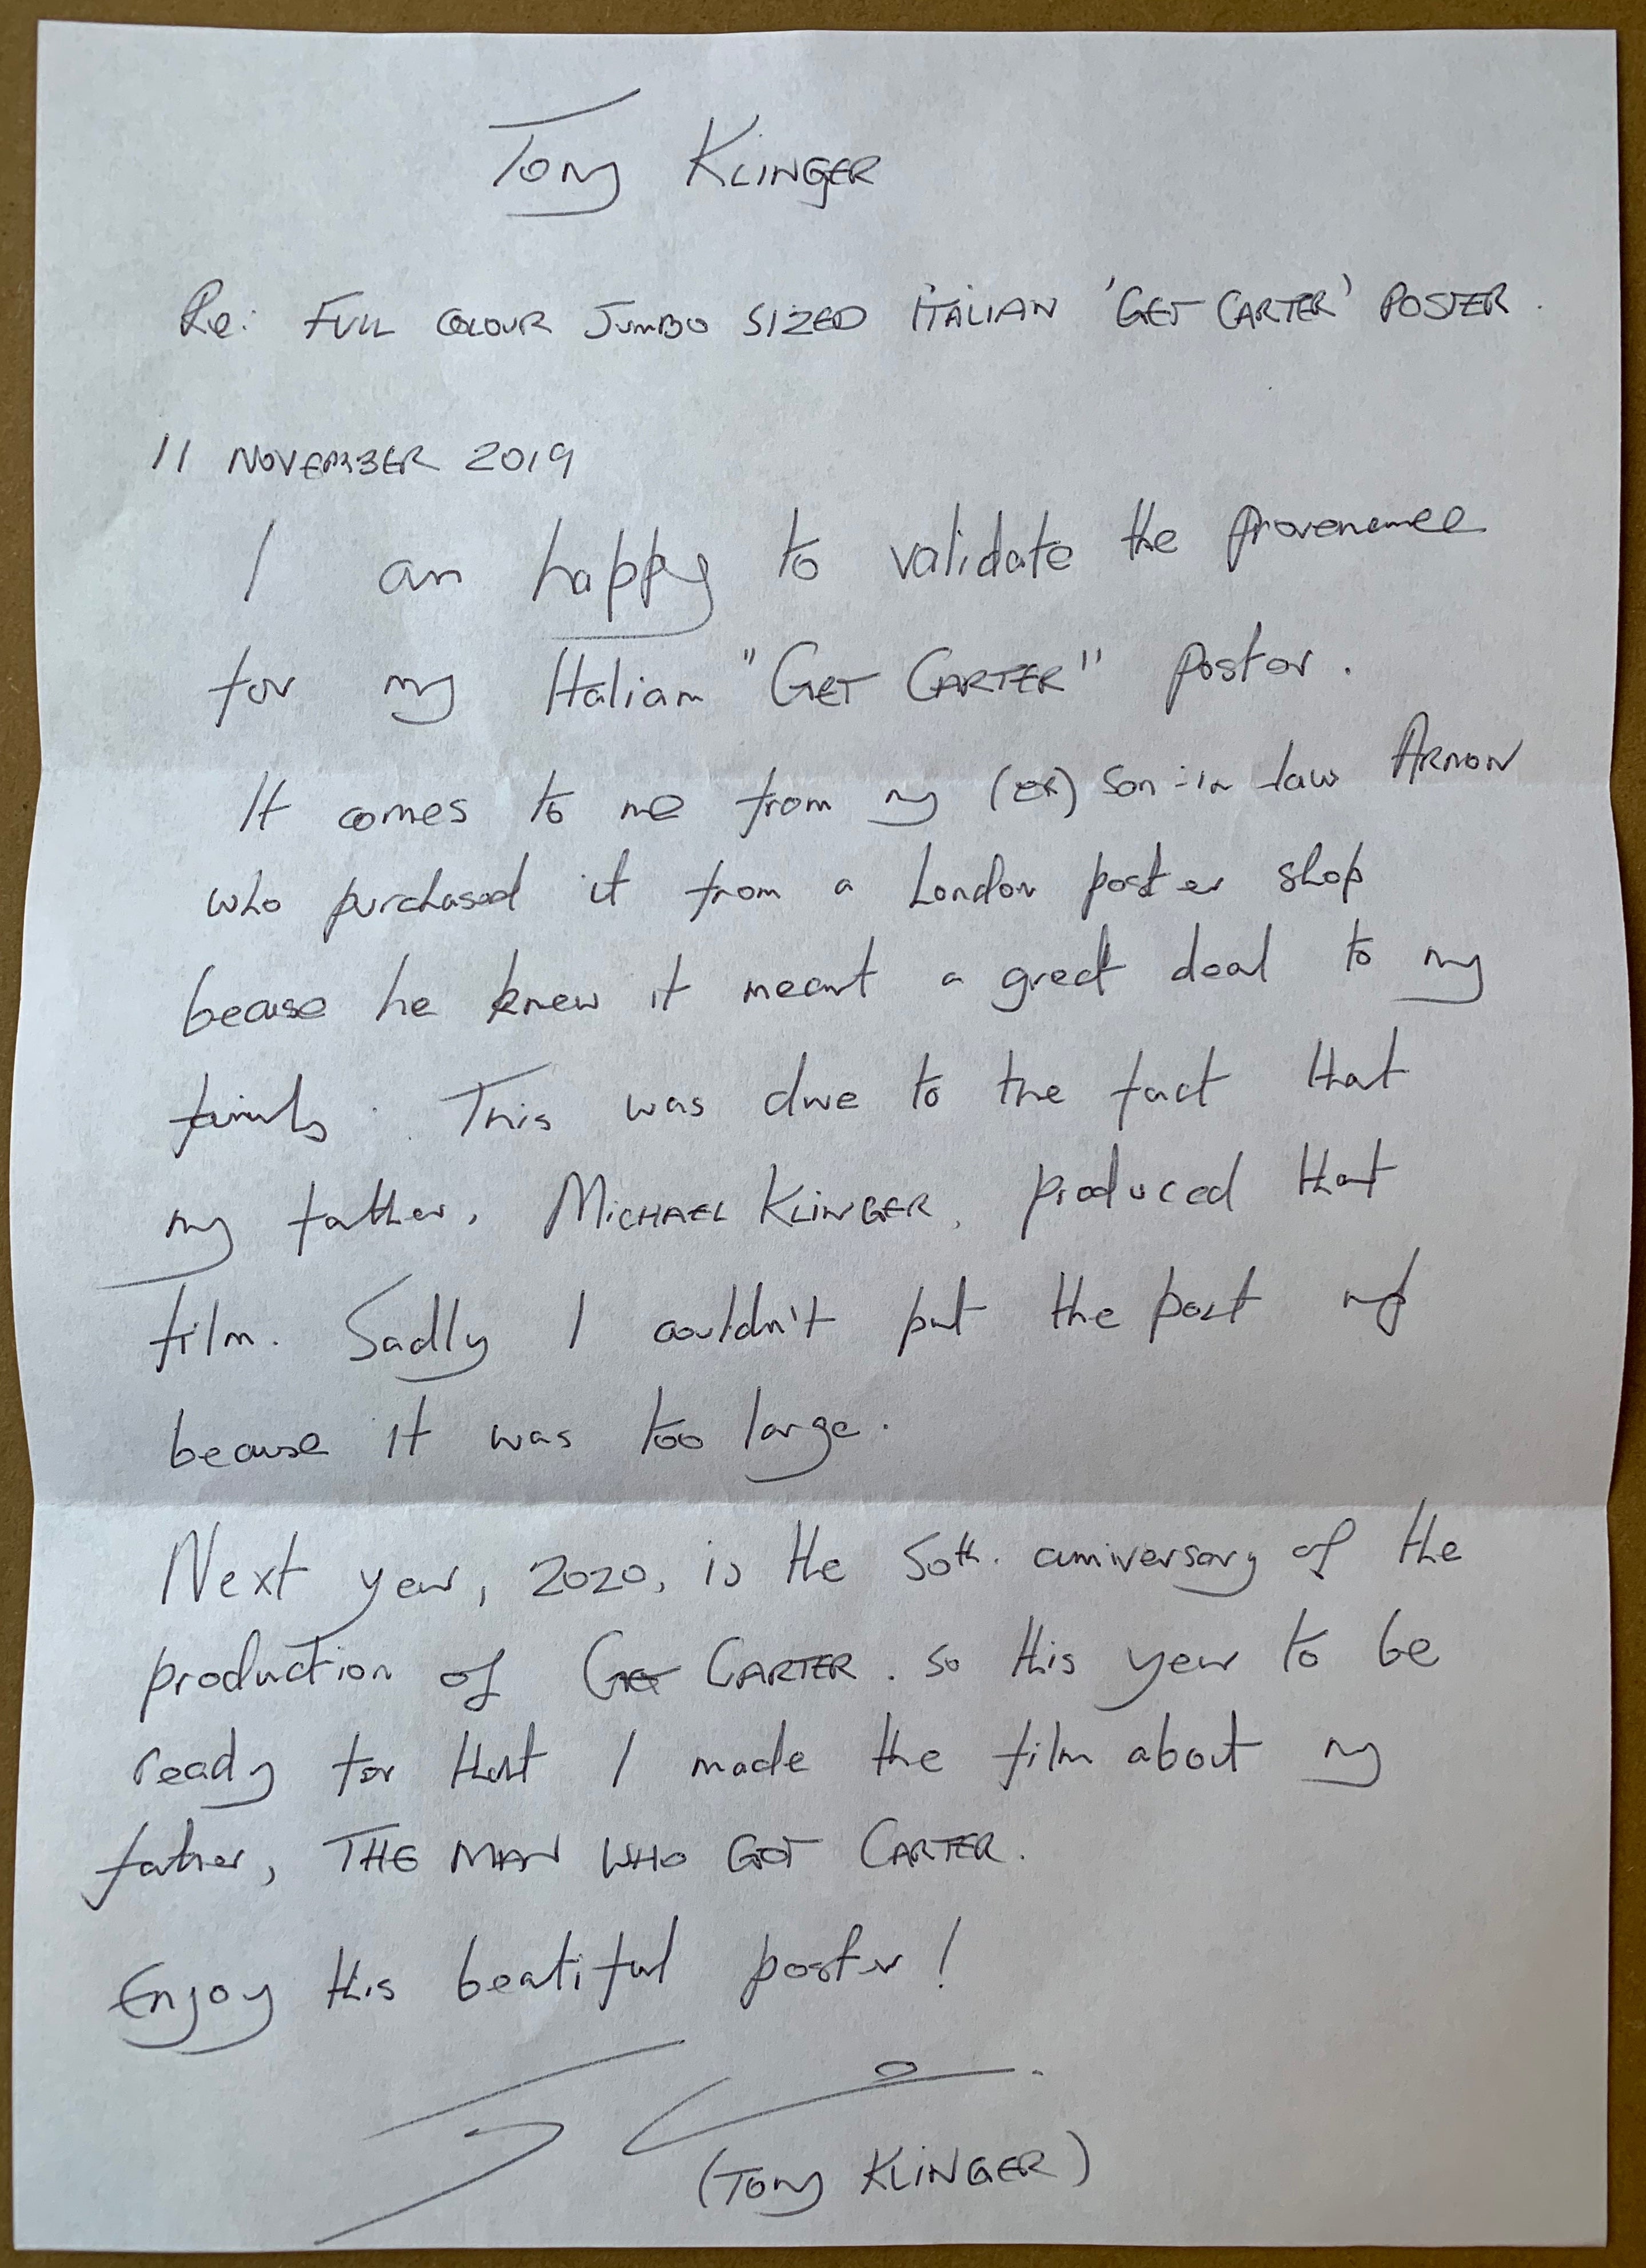 Tony KLINGER
Re: FULL COLOUR JUMBO SIZED ITALIAN 'GET CARTER' POSTER.
11 NOVEMBER 2019
I am happy to validate the provenance
for my Italian "GET CARTER" poster.
It comes to me from my (EX) son-in law ARNON
who purchased it from a London poster shop
becuse he knew it meant a great deal to my
family. This was due to the fact that
my father, MICHAEL KLINGER, produced that
film. Sadly I couldn't put the post
because it was too large.
Next year, 2020, is the 50th. anniversary of the
production of GET CARTER. so this year to be
ready for that I made the film about my
father, THE MAN WHO GOT CARTER.
Enjoy this beatiful poster!
(TONY KLINGER)